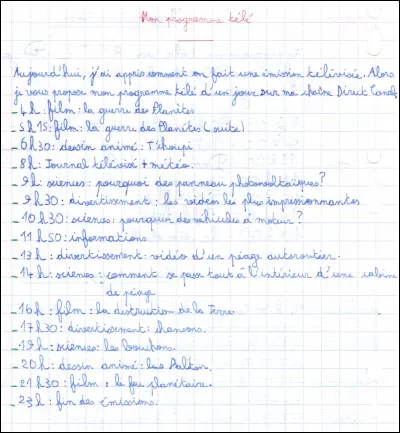 Mon programme télé
Aujourd'hui, j'ai appris comment on fait une émission télévisée. Alors
je vous propose mon programme télé d'un jour sur ma chaîne Direct Canal.
_ 4h: film: la guerre des Planètes
_ 5h15: film: la guerre des Planètes (suite)
_ 6h30: dessin animé: T'choupi
_ 8h: Journal télévisé + météo.
_ 9h: sciences: pourquoi des panneau photovoltaïques?
_ 9h30: divertissement: les vidéos les plus impressionnantes
_ 10h30: sciences: pourquoi des véhicules à moteur?
_ 11h50: informations
_ 13h: divertissement: vidéo d'un péage autoroutier.
_ 14h: sciences: comment se passe tout à l'intérieur d'une cabine
de péage
_ 16h: film: la destruction de la Terre
_ 17h30: divertissement: chansons.
_ 19h: sciences: les bouchons.
_ 20h: dessin animé: les Dalton.
_ 21h30: film: le feu planétaire.
_ 23h: fin des émissions.